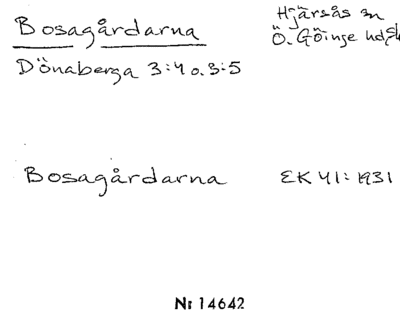 Bosagårdarna
Hjärsås sn
Ö. Göinge hd, Sk
Dönaberga 3:4 o. 3:5
Bosagårdarna
EK 41: 1931
Nr 14642